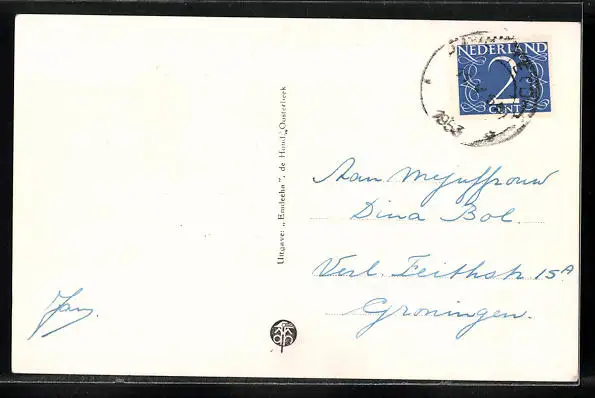 NEDERLAND
2
CENT
1953
Uitgave: „Emdeeha”, de Hond, Oosterbeek
Aan Mejuffrouw
Dina Bol.
Verl. Feithstr 15A
Groningen.
Jan.